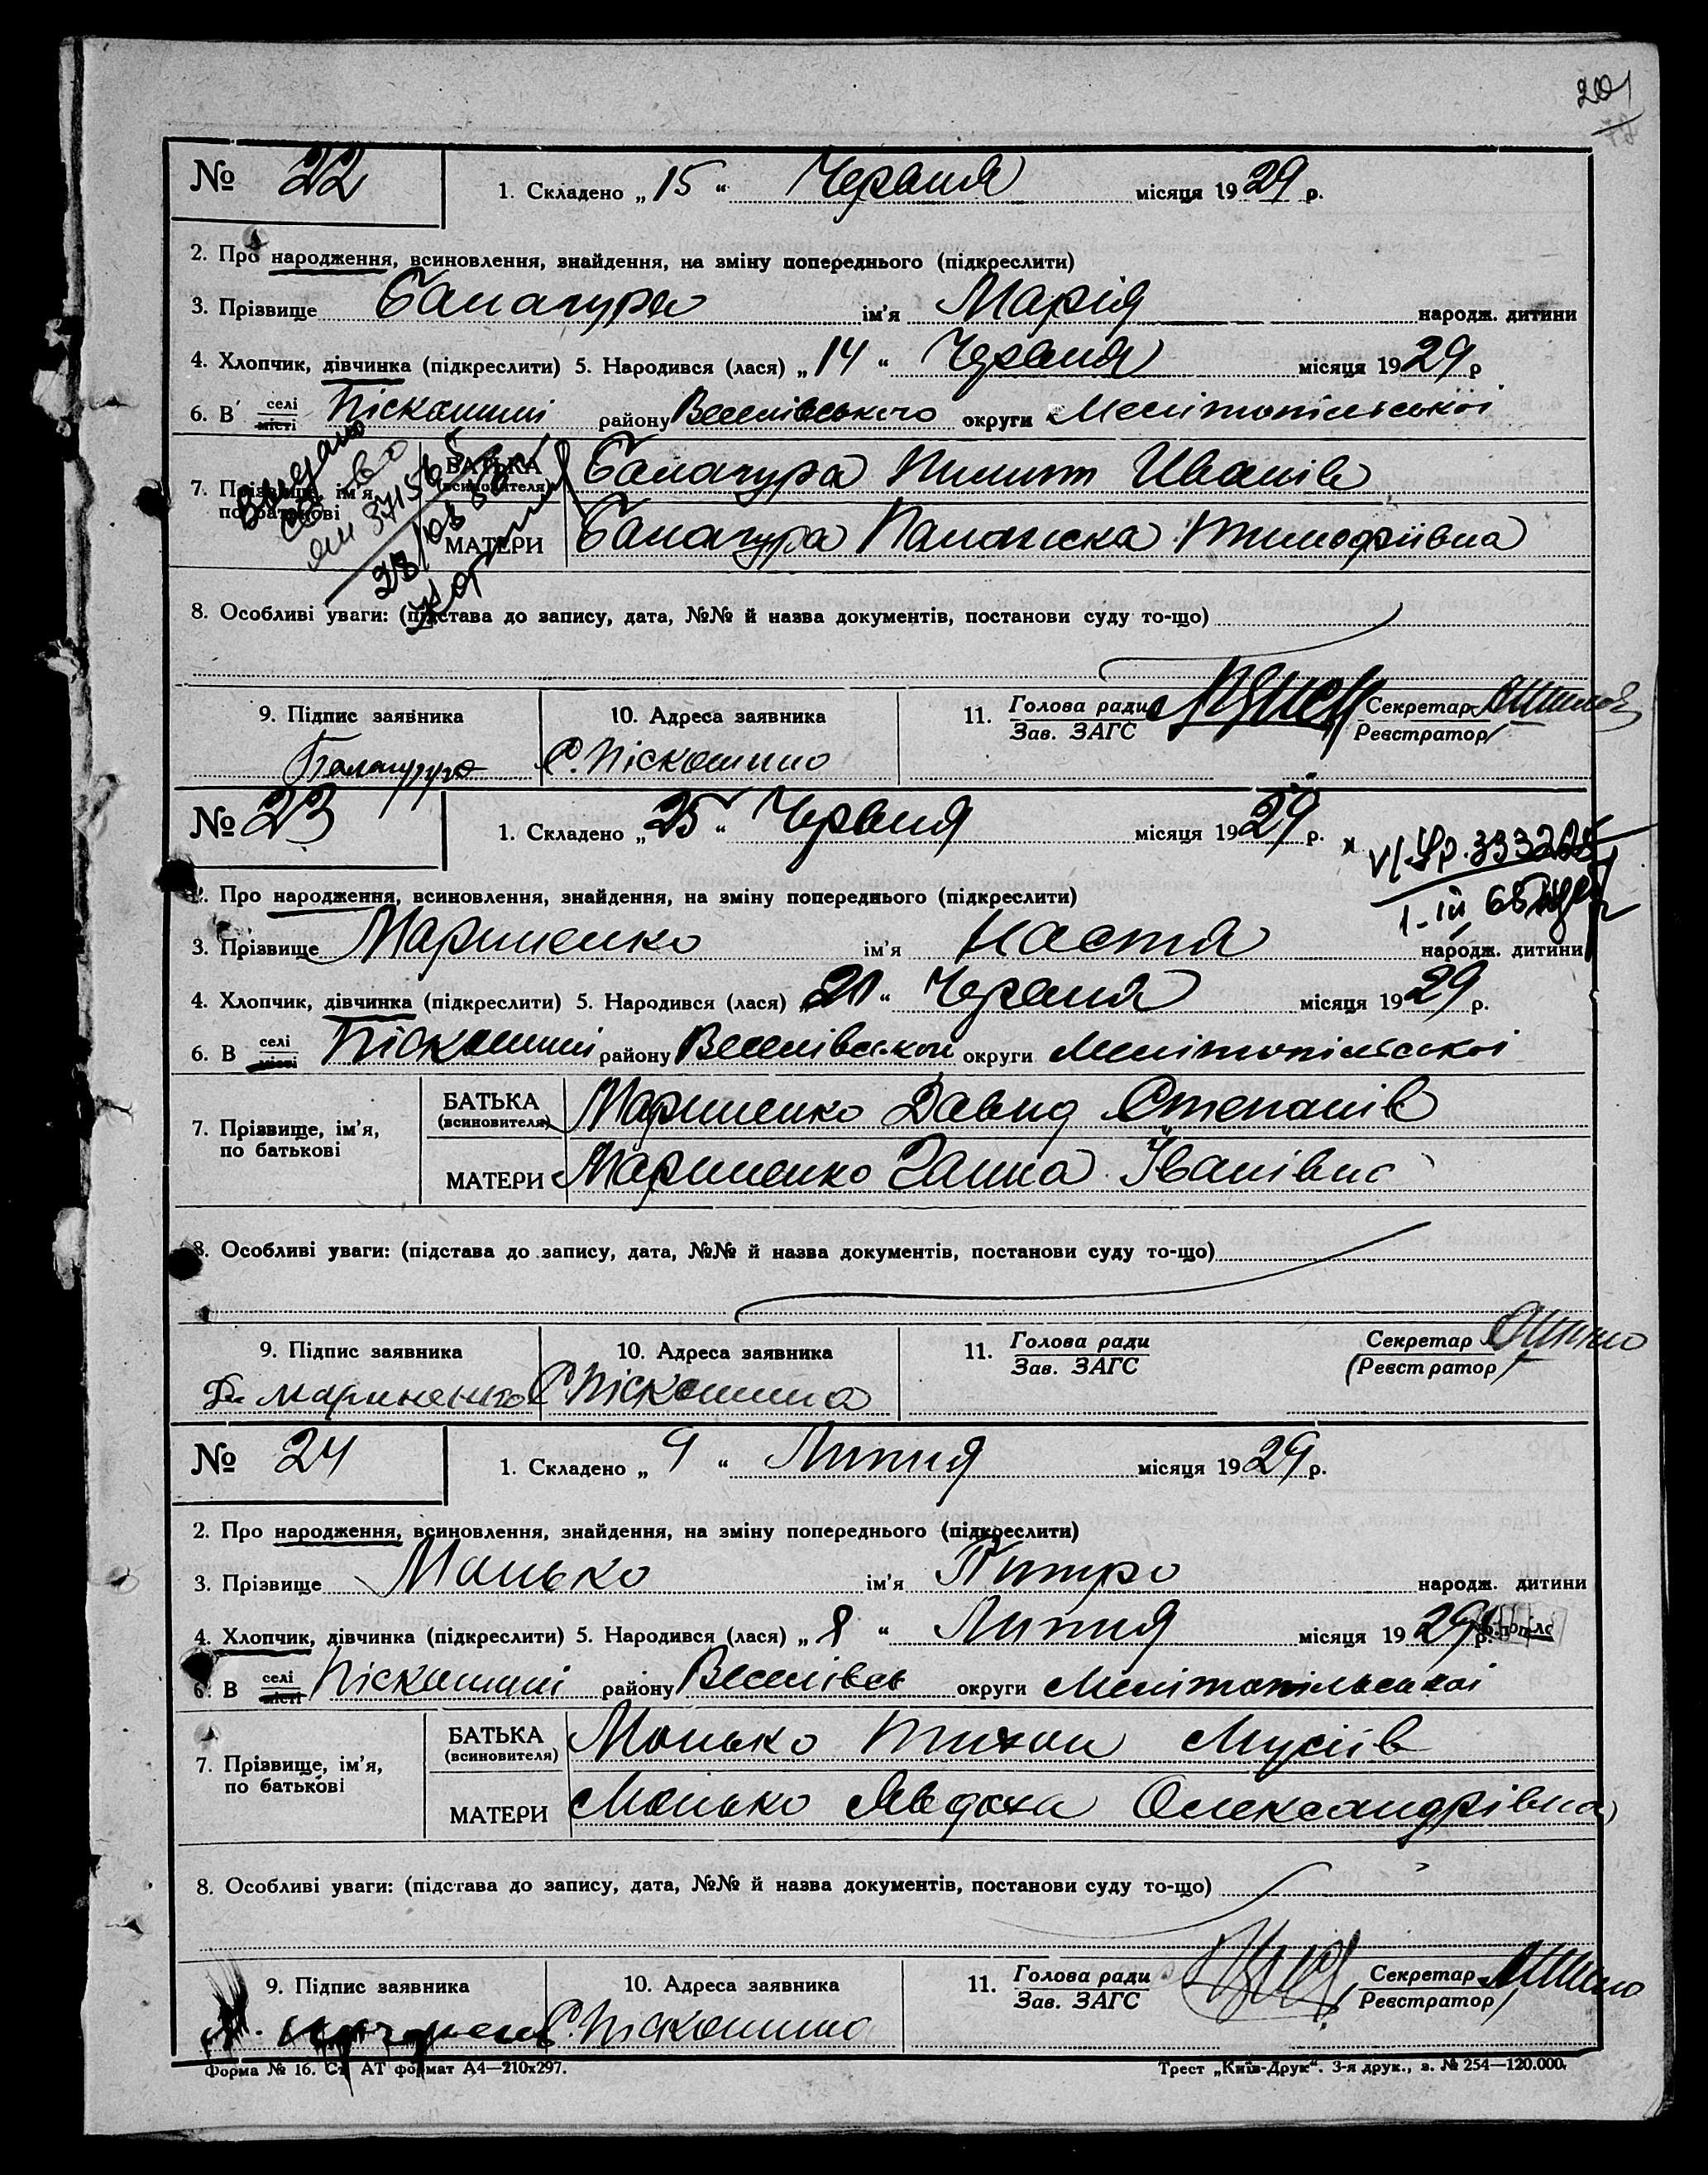 201
№ 22
1. Складено „ 15 “ Червня місяця 1929 р.
2. Про народження, всиновлення, знайдення, на зміну попереднього (підкреслити)
3. Прізвище Балагура ім'я Марія народж. дитини
4. Хлопчик, дівчинка (підкреслити) 5. Народився (лася) „ 14 “ Червня місяця 1929 р
6. В селі місті Піскошині району Веселівського округи Мелітопільської
7. Прізвище, ім'я, по батькові
БАТЬКА (всиновителя) Балагура Пилип Іванів
МАТЕРИ Балагура Палажка Тимофіївна
Видано
28/03
8. Особливі уваги: (підстава до запису, дата, №№ й назва документів, постанови суду то-що)
9. Підпис заявника 10. Адреса заявника 11. Голова ради Зав. ЗАГС Секретар Реєстратор
Балагура С. Піскошино
№ 23
1. Складено „ 25 “ Червня місяця 1929 р.
2. Про народження, всиновлення, знайдення, на зміну попереднього (підкреслити)
3. Прізвище Мариненко ім'я Настя народж. дитини
4. Хлопчик, дівчинка (підкреслити) 5. Народився (лася) 21 “ Червня місяця 1929 р.
6. В селі місті Піскошині району Веселівськ округи Мелітопільської
7. Прізвище, ім'я, по батькові
БАТЬКА (всиновителя) Мариненко Давид Степанів
МАТЕРИ Мариненко Ганна Іванівна
8. Особливі уваги: (підстава до запису, дата, №№ й назва документів, постанови суду то-що)
9. Підпис заявника 10. Адреса заявника 11. Голова ради Зав. ЗАГС Секретар Реєстратор
Мариненко С. Піскошино
№ 24
1. Складено „ 9 “ Липня місяця 1929 р.
2. Про народження, всиновлення, знайдення, на зміну попереднього (підкреслити)
3. Прізвище Манько ім'я Питро народж. дитини
4. Хлопчик, дівчинка (підкреслити) 5. Народився (лася) „ 8 “ Липня місяця 1929 р.
6. В селі місті Піскошині району Веселівсь округи Мелітопільської
7. Прізвище, ім'я, по батькові
БАТЬКА (всиновителя) Манько Тихон Мусіїв
МАТЕРИ Манько Явдоха Олександрівна
8. Особливі уваги: (підстава до запису, дата, №№ й назва документів, постанови суду то-що)
9. Підпис заявника 10. Адреса заявника 11. Голова ради Зав. ЗАГС Секретар Реєстратор
С. Піскошино
Форма № 16. Ст АТ формат А4—210х297. Трест „Київ-Друк“. 3-я друк., з. № 254—120.000.